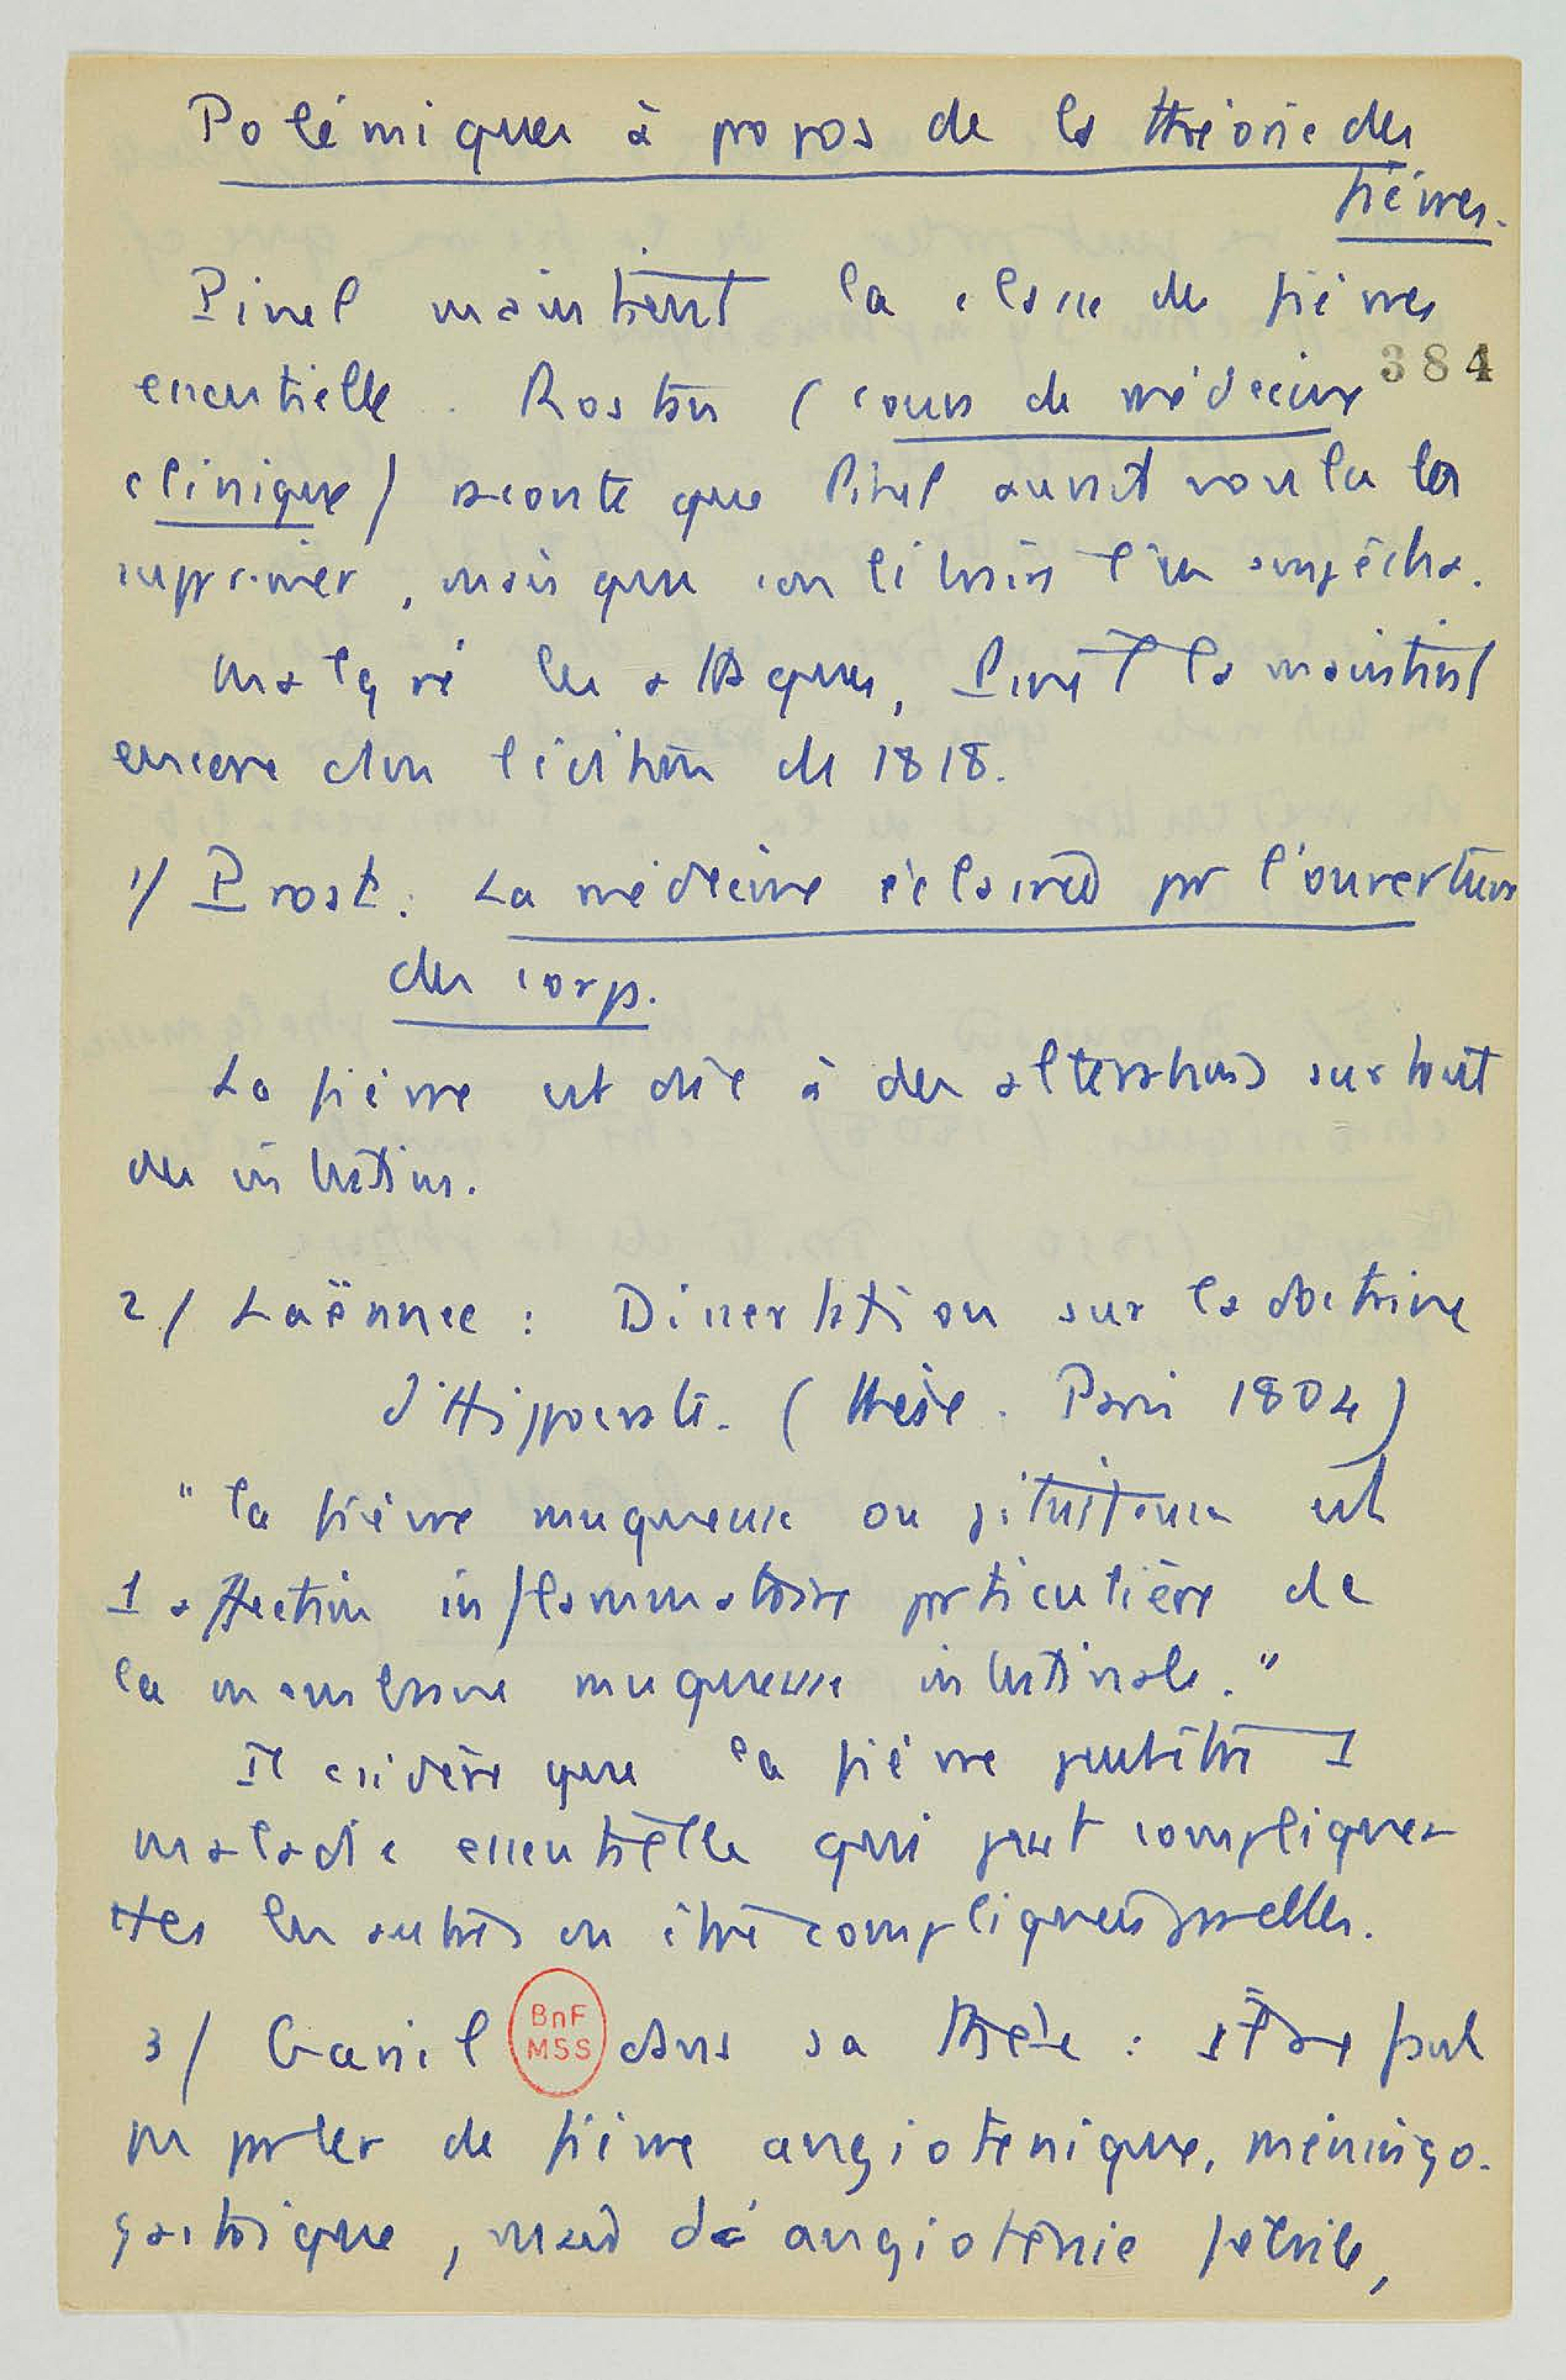 Polémiques à propos de la théorie des
fièvres.
Pinel maintient la classe des fièvres
384
essentielles. Rostan (cours de médecine
clinique) raconte que Pinel aurait voulu la
supprimer, mais que son libraire l'en empêcha.
Malgré les attaques, Pinel la maintient
encore dans l'édition de 1818.
1/ Prost : La médecine éclairée par l'ouverture
des corps.
La fièvre est dûe à des altérations surtout
des intestins.
2/ Laënnec : Dissertation sur la doctrine
d'Hippocrate. (thèse. Paris 1804)
"la fièvre muqueuse ou pituiteuse est
1 affection inflammatoire particulière de
la membrane muqueuse intestinale."
Il considère que la fièvre peut être 1
maladie essentielle qui peut compliquer
les autres ou être compliquées par elles.
3/ dans sa thèse : faut
pas parler de fièvre angioténique, méningo-
gastrique, mais d'angioténie fébrile,
BnF
MSS